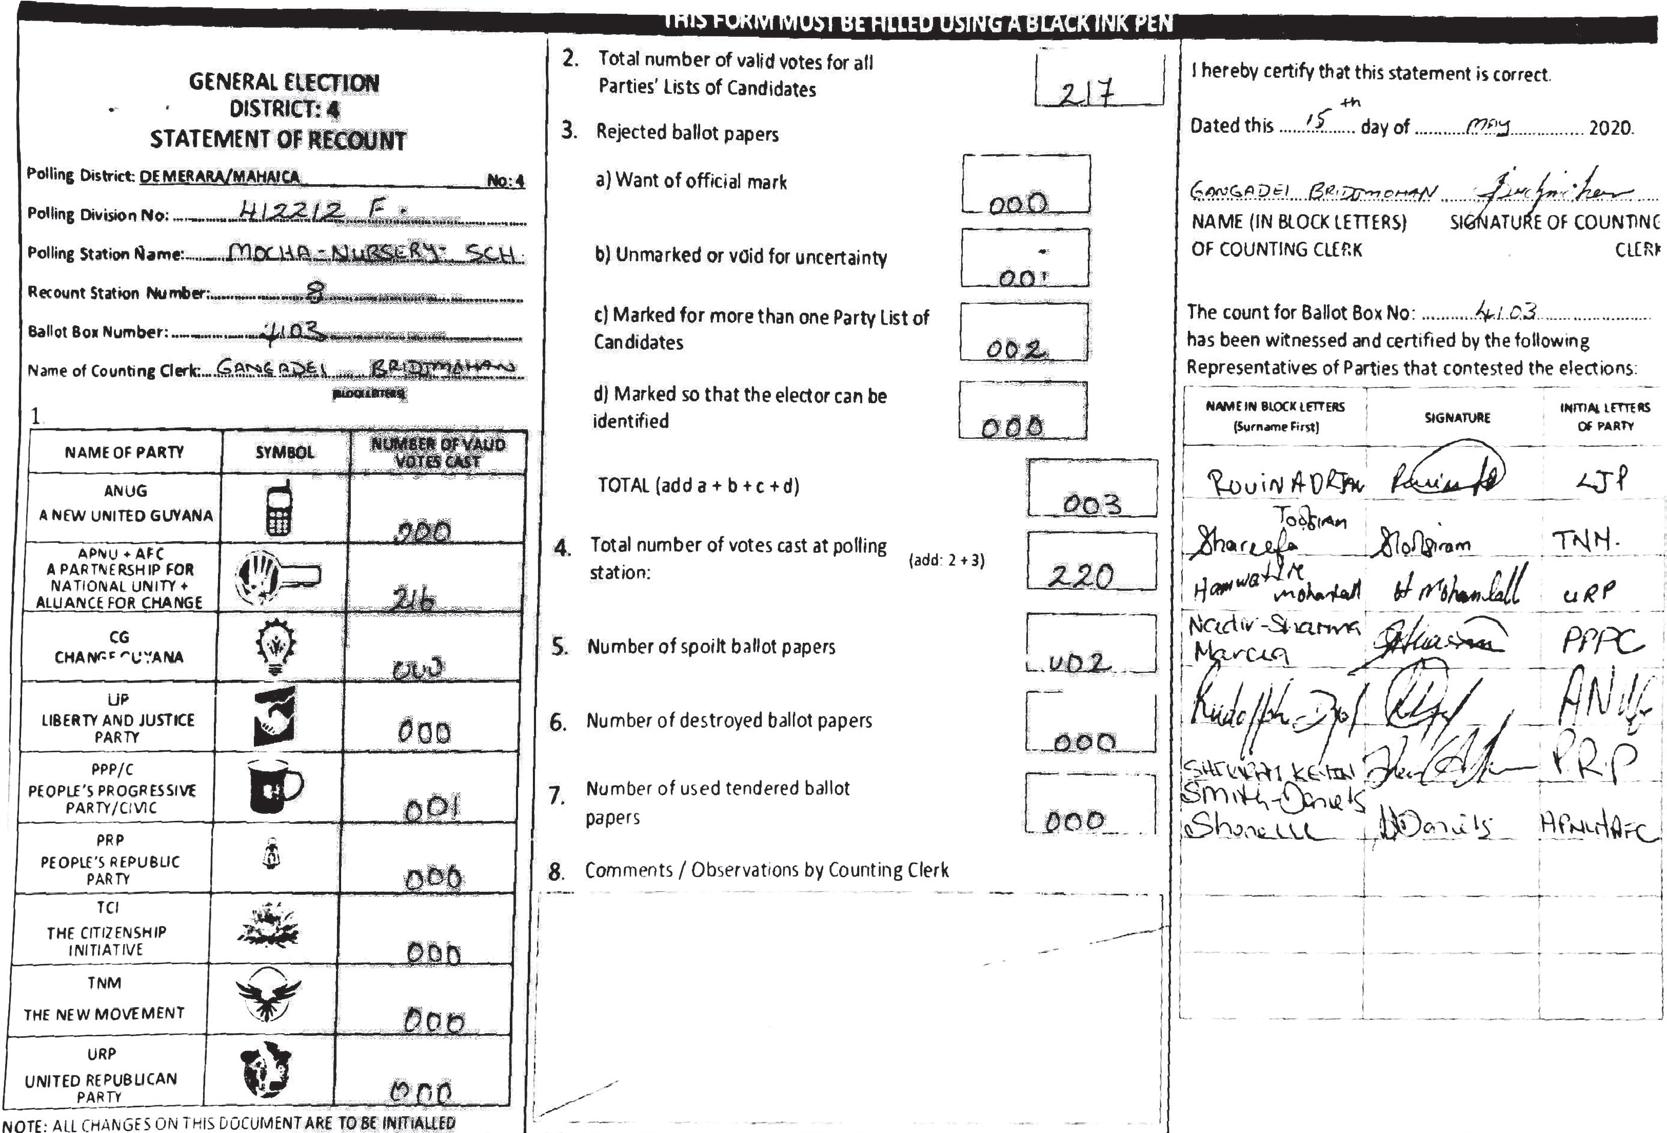 THIS FORM MUST BE FILLED USING A BLACK INK PEN
GENERAL ELECTION
DISTRICT: 4
STATEMENT OF RECOUNT
Polling District: DEMERARA/MAHAICA No: 4
Polling Division No: 412212 F
Polling Station Name: MOCHA-NURSERY-SCH.
Recount Station Number: 8
Ballot Box Number: 4103
Name of Counting Clerk: GANGADEI BRIDJMOHAN
(BLOCK LETTERS)
1.
NAME OF PARTY SYMBOL NUMBER OF VALID VOTES CAST
ANUG
A NEW UNITED GUYANA 000
APNU + AFC
A PARTNERSHIP FOR
NATIONAL UNITY +
ALLIANCE FOR CHANGE 216
CG
CHANGE GUYANA 000
LJP
LIBERTY AND JUSTICE
PARTY 000
PPP/C
PEOPLE'S PROGRESSIVE
PARTY/CIVIC 001
PRP
PEOPLE'S REPUBLIC
PARTY 000
TCI
THE CITIZENSHIP
INITIATIVE 000
TNM
THE NEW MOVEMENT 000
URP
UNITED REPUBLICAN
PARTY 000
NOTE: ALL CHANGES ON THIS DOCUMENT ARE TO BE INITIALLED
2. Total number of valid votes for all
Parties' Lists of Candidates 217
3. Rejected ballot papers
a) Want of official mark 000
b) Unmarked or void for uncertainty 001
c) Marked for more than one Party List of
Candidates 002
d) Marked so that the elector can be
identified 000
TOTAL (add a + b + c + d) 003
4. Total number of votes cast at polling
station: (add: 2 + 3) 220
5. Number of spoilt ballot papers 002
6. Number of destroyed ballot papers 000
7. Number of used tendered ballot
papers 000
8. Comments / Observations by Counting Clerk
I hereby certify that this statement is correct.
Dated this 15th day of may 2020.
GANGADEI BRIDJMOHAN
NAME (IN BLOCK LETTERS) SIGNATURE OF COUNTING
OF COUNTING CLERK CLERK
The count for Ballot Box No: 4103
has been witnessed and certified by the following
Representatives of Parties that contested the elections:
NAME IN BLOCK LETTERS SIGNATURE INITIAL LETTERS
(Surname First) OF PARTY
ROUIN ADRIAN LJP
Shareefa TNM.
Hamwattie H Mohanlall URP
Nadir-Sharma
Marcia PPPC
Rudolph ANUG
KEVIN PRP
Smith-Daniels
Shonelle Daniels APNU+AFC